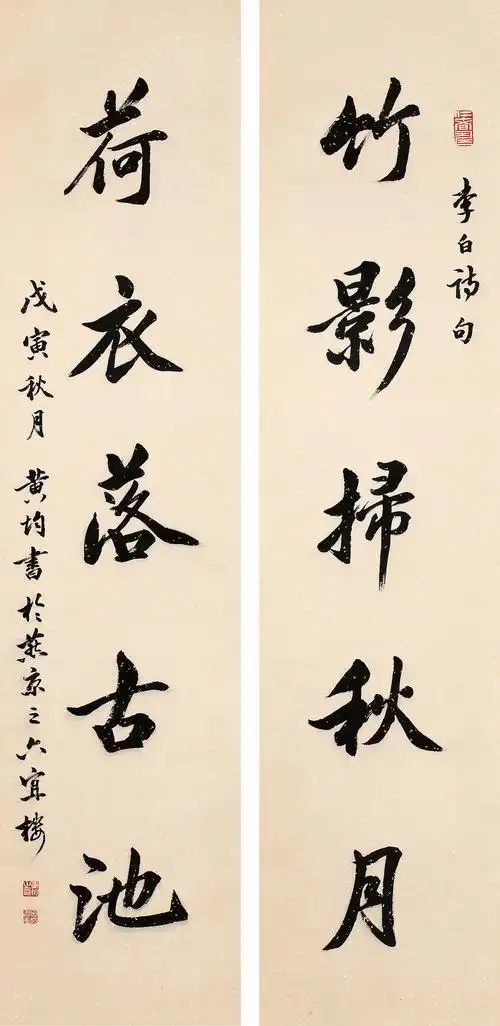 李白詩句
竹影掃秋月
荷衣落古池
戊寅秋月 黄均書於燕京之六宜樓